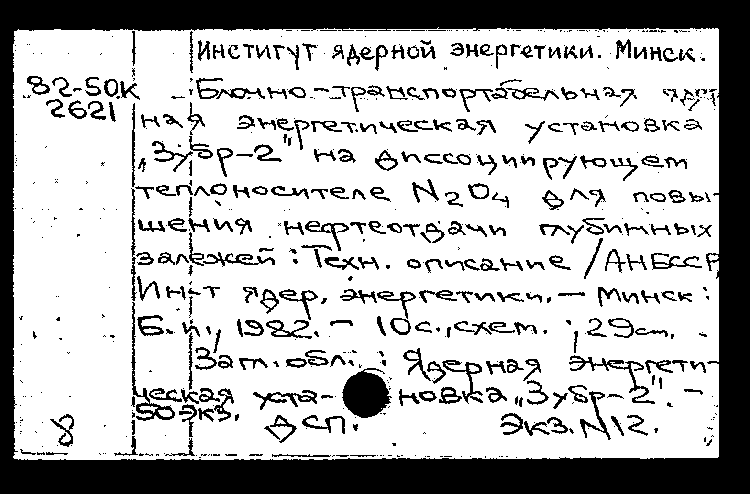 Институт ядерной энергетики. Минск.
82-50к Блочно-транспортабельная ядер-
2621 ная энергетическая установка
„Зубр-2" на диссоциирующем
теплоносителе N2O4 для повы-
шения нефтеотдачи глубинных
залежей : Техн. описание / АН БССР,
Ин-т ядер. энергетики. — Минск :
Б. и., 1982. — 10 с., схем. ; 29 cm.
Загл. обл. : Ядерная энергети-
ческая уста- новка „Зубр-2". —
50 экз. ДСП. Экз. N 12.
8